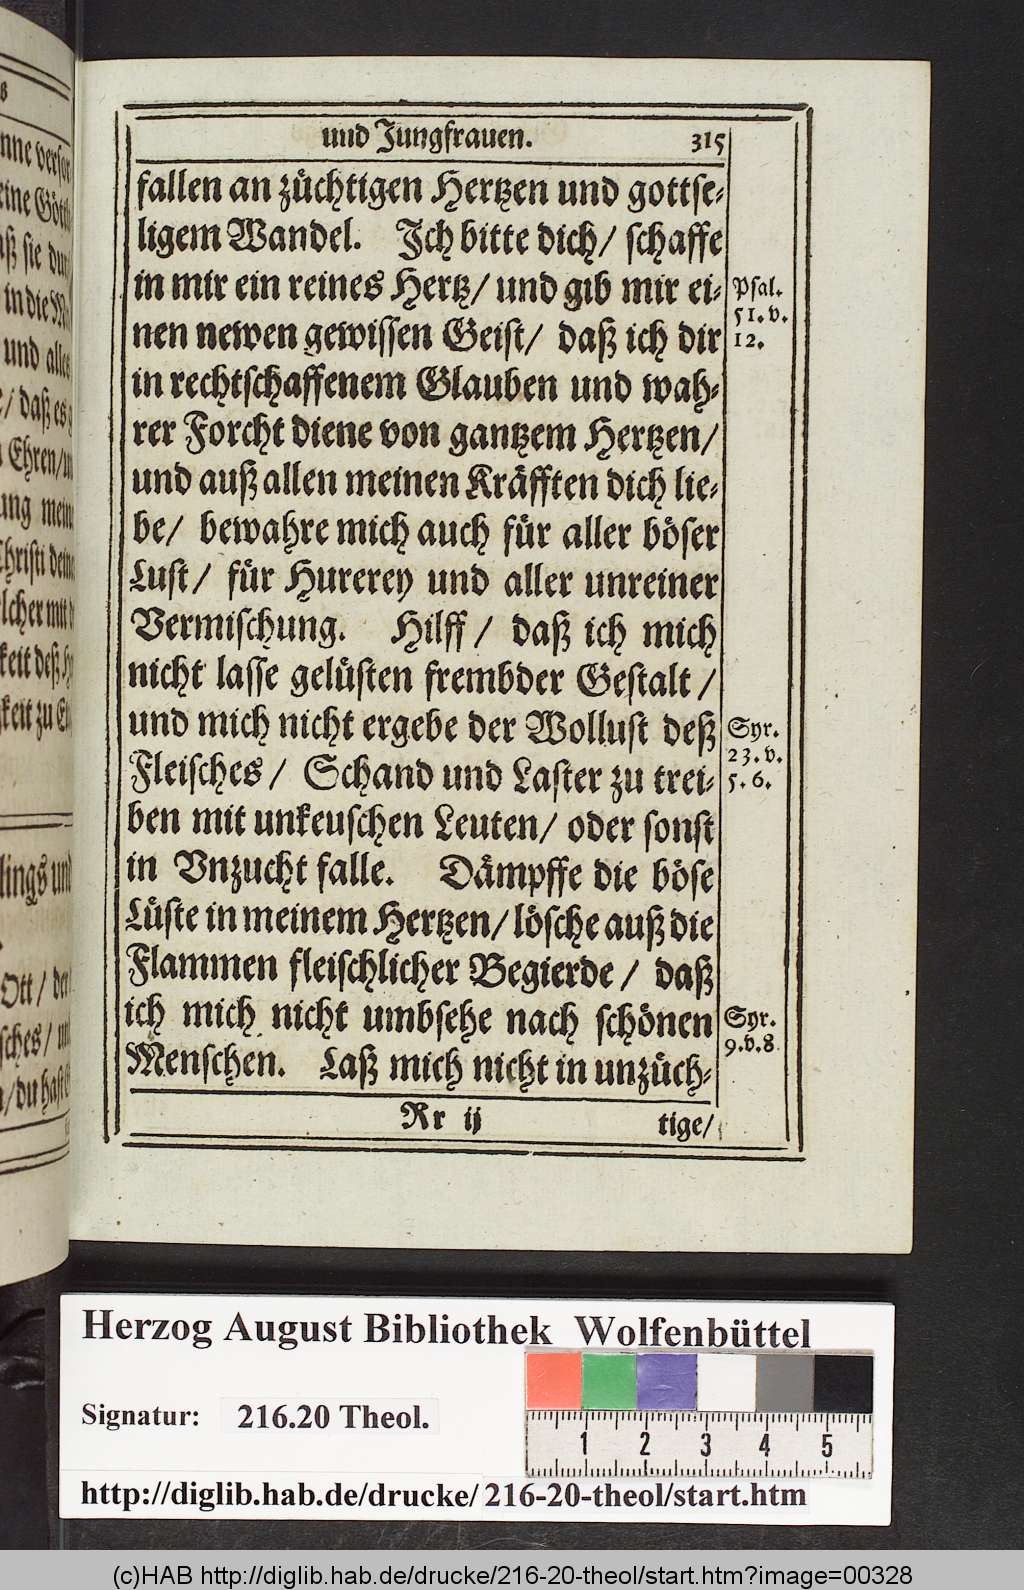 und Jungfrauen. 315
fallen an züchtigen Hertzen und gottse-
ligem Wandel. Ich bitte dich/ schaffe
in mir ein reines Hertz/ und gib mir ei-
nen newen gewissen Geist/ daß ich dir
in rechtschaffenem Glauben und wah-
rer Forcht diene von gantzem Hertzen/
und auß allen meinen Kräfften dich lie-
be/ bewahre mich auch für aller böser
Lust/ für Hurerey und aller unreiner
Vermischung. Hilff/ daß ich mich
nicht lasse gelüsten frembder Gestalt/
und mich nicht ergebe der Wollust deß
Fleisches/ Schand und Laster zu trei-
ben mit unkeuschen Leuten/ oder sonst
in Vnzucht falle. Dämpffe die böse
Lüste in meinem Hertzen/ lösche auß die
Flammen fleischlicher Begierde/ daß
ich mich nicht umbsehe nach schönen
Menschen. Laß mich nicht in unzüch-
Rr ij tige/
Psal.
51. v.
12.
Syr.
23. v.
5. 6.
Syr.
9. v. 8
und alles
daß es
Ehren/
lings und
Ott/
sches/
Herzog August Bibliothek Wolfenbüttel
Signatur: 216.20 Theol.
1 2 3 4 5
http://diglib.hab.de/drucke/216-20-theol/start.htm
(c)HAB http://diglib.hab.de/drucke/216-20-theol/start.htm?image=00328